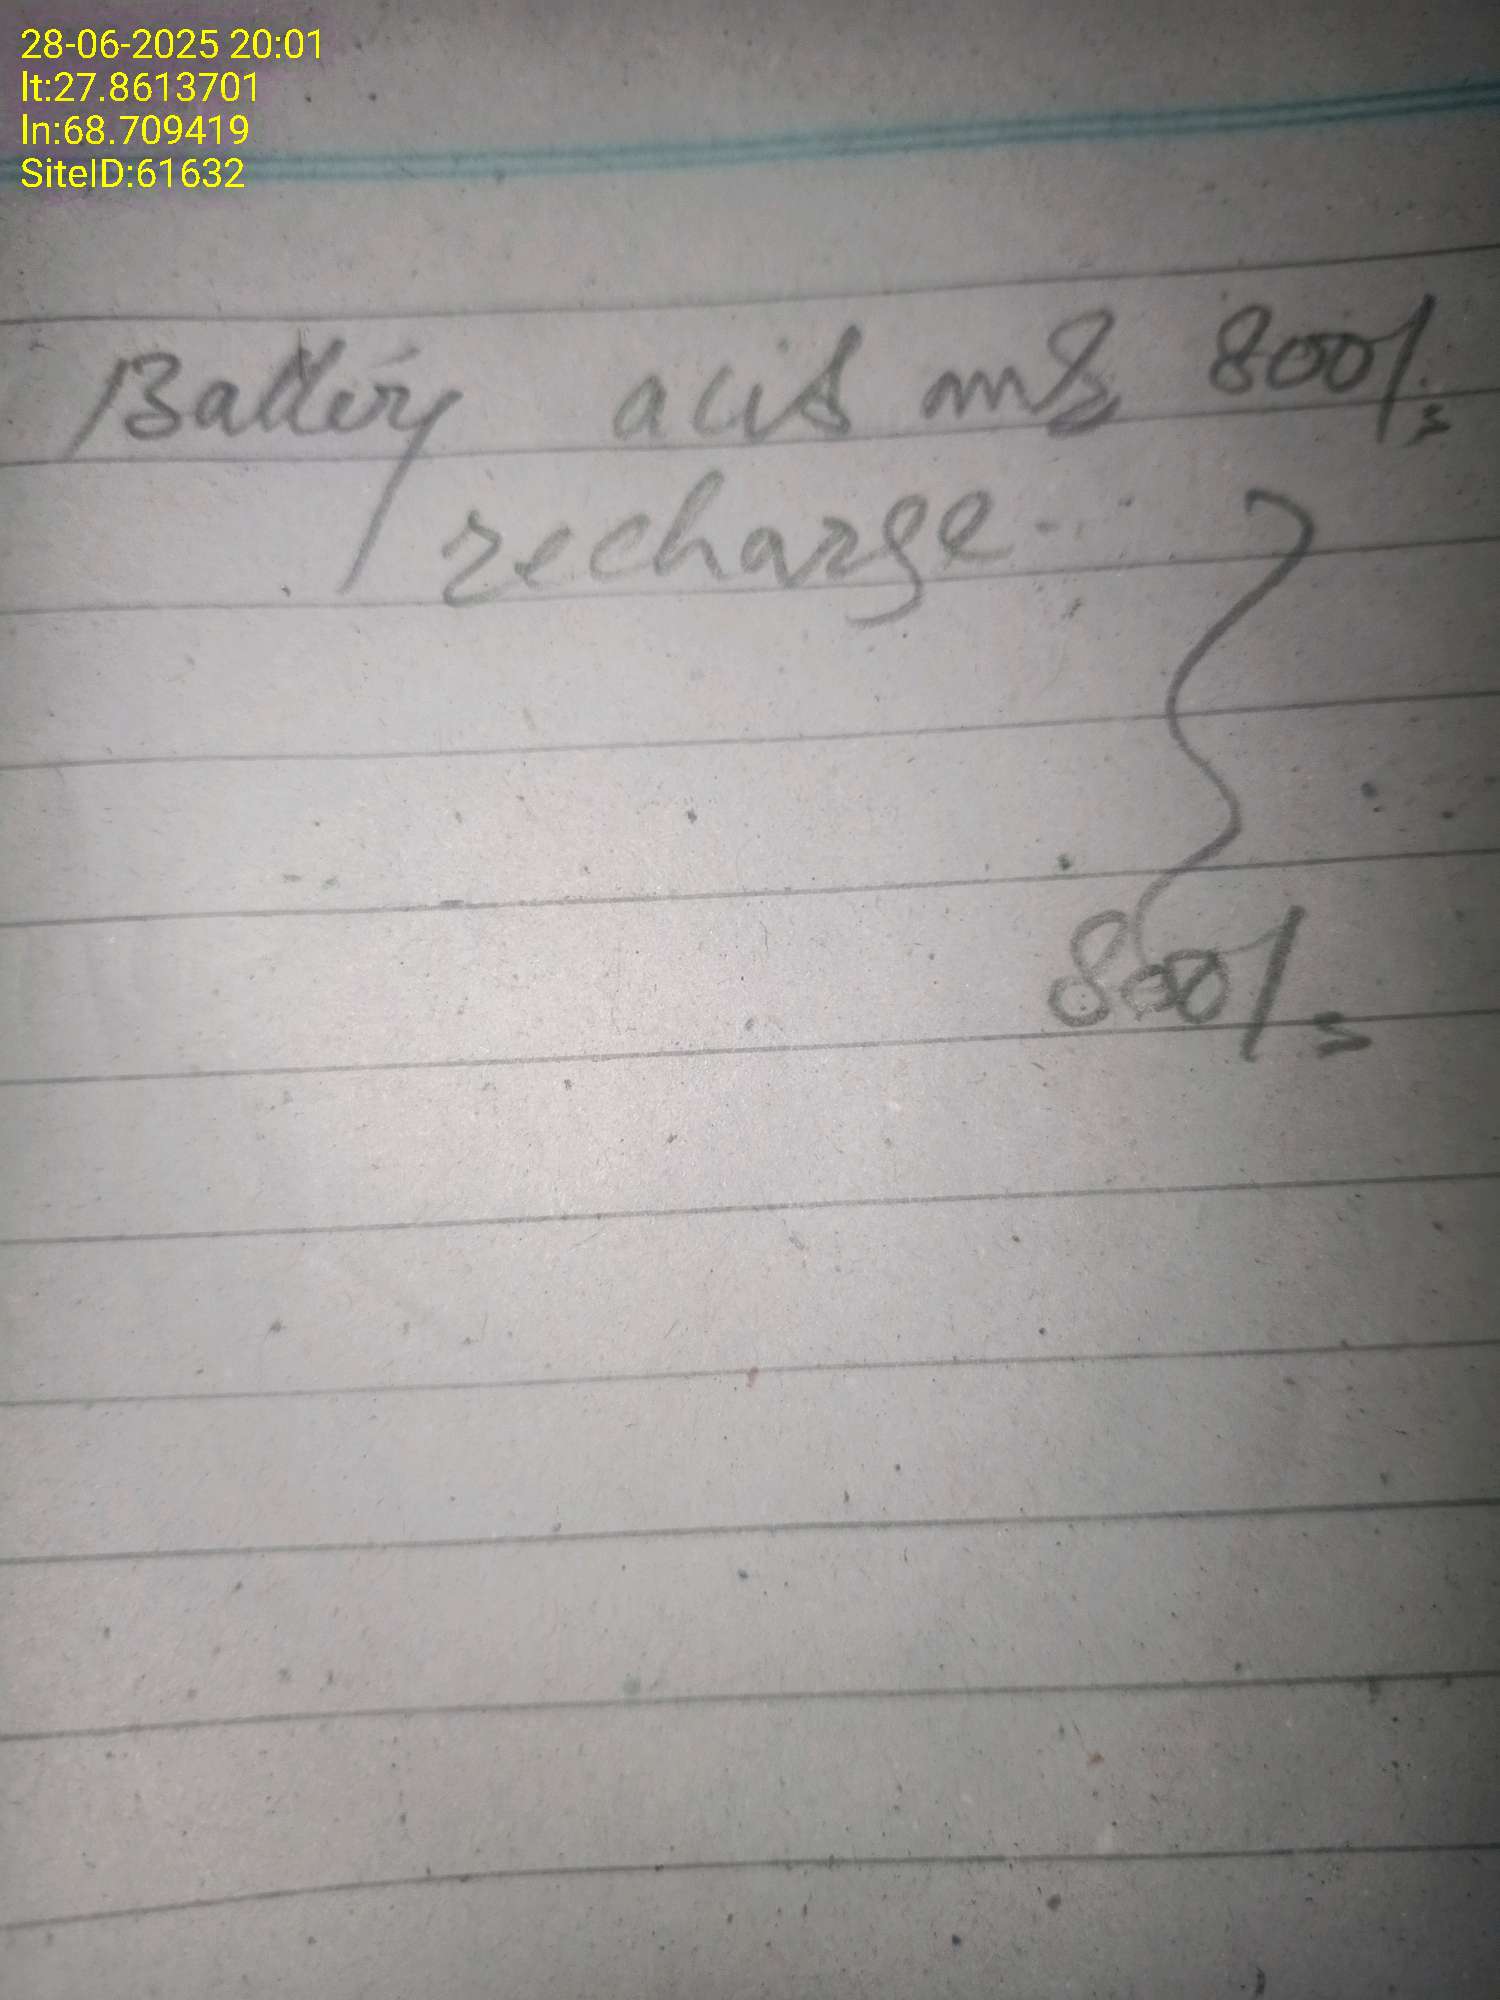 28-06-2025 20:01
lt:27.8613701
ln:68.709419
SiteID:61632
Battery acid 800/
recharge
800/